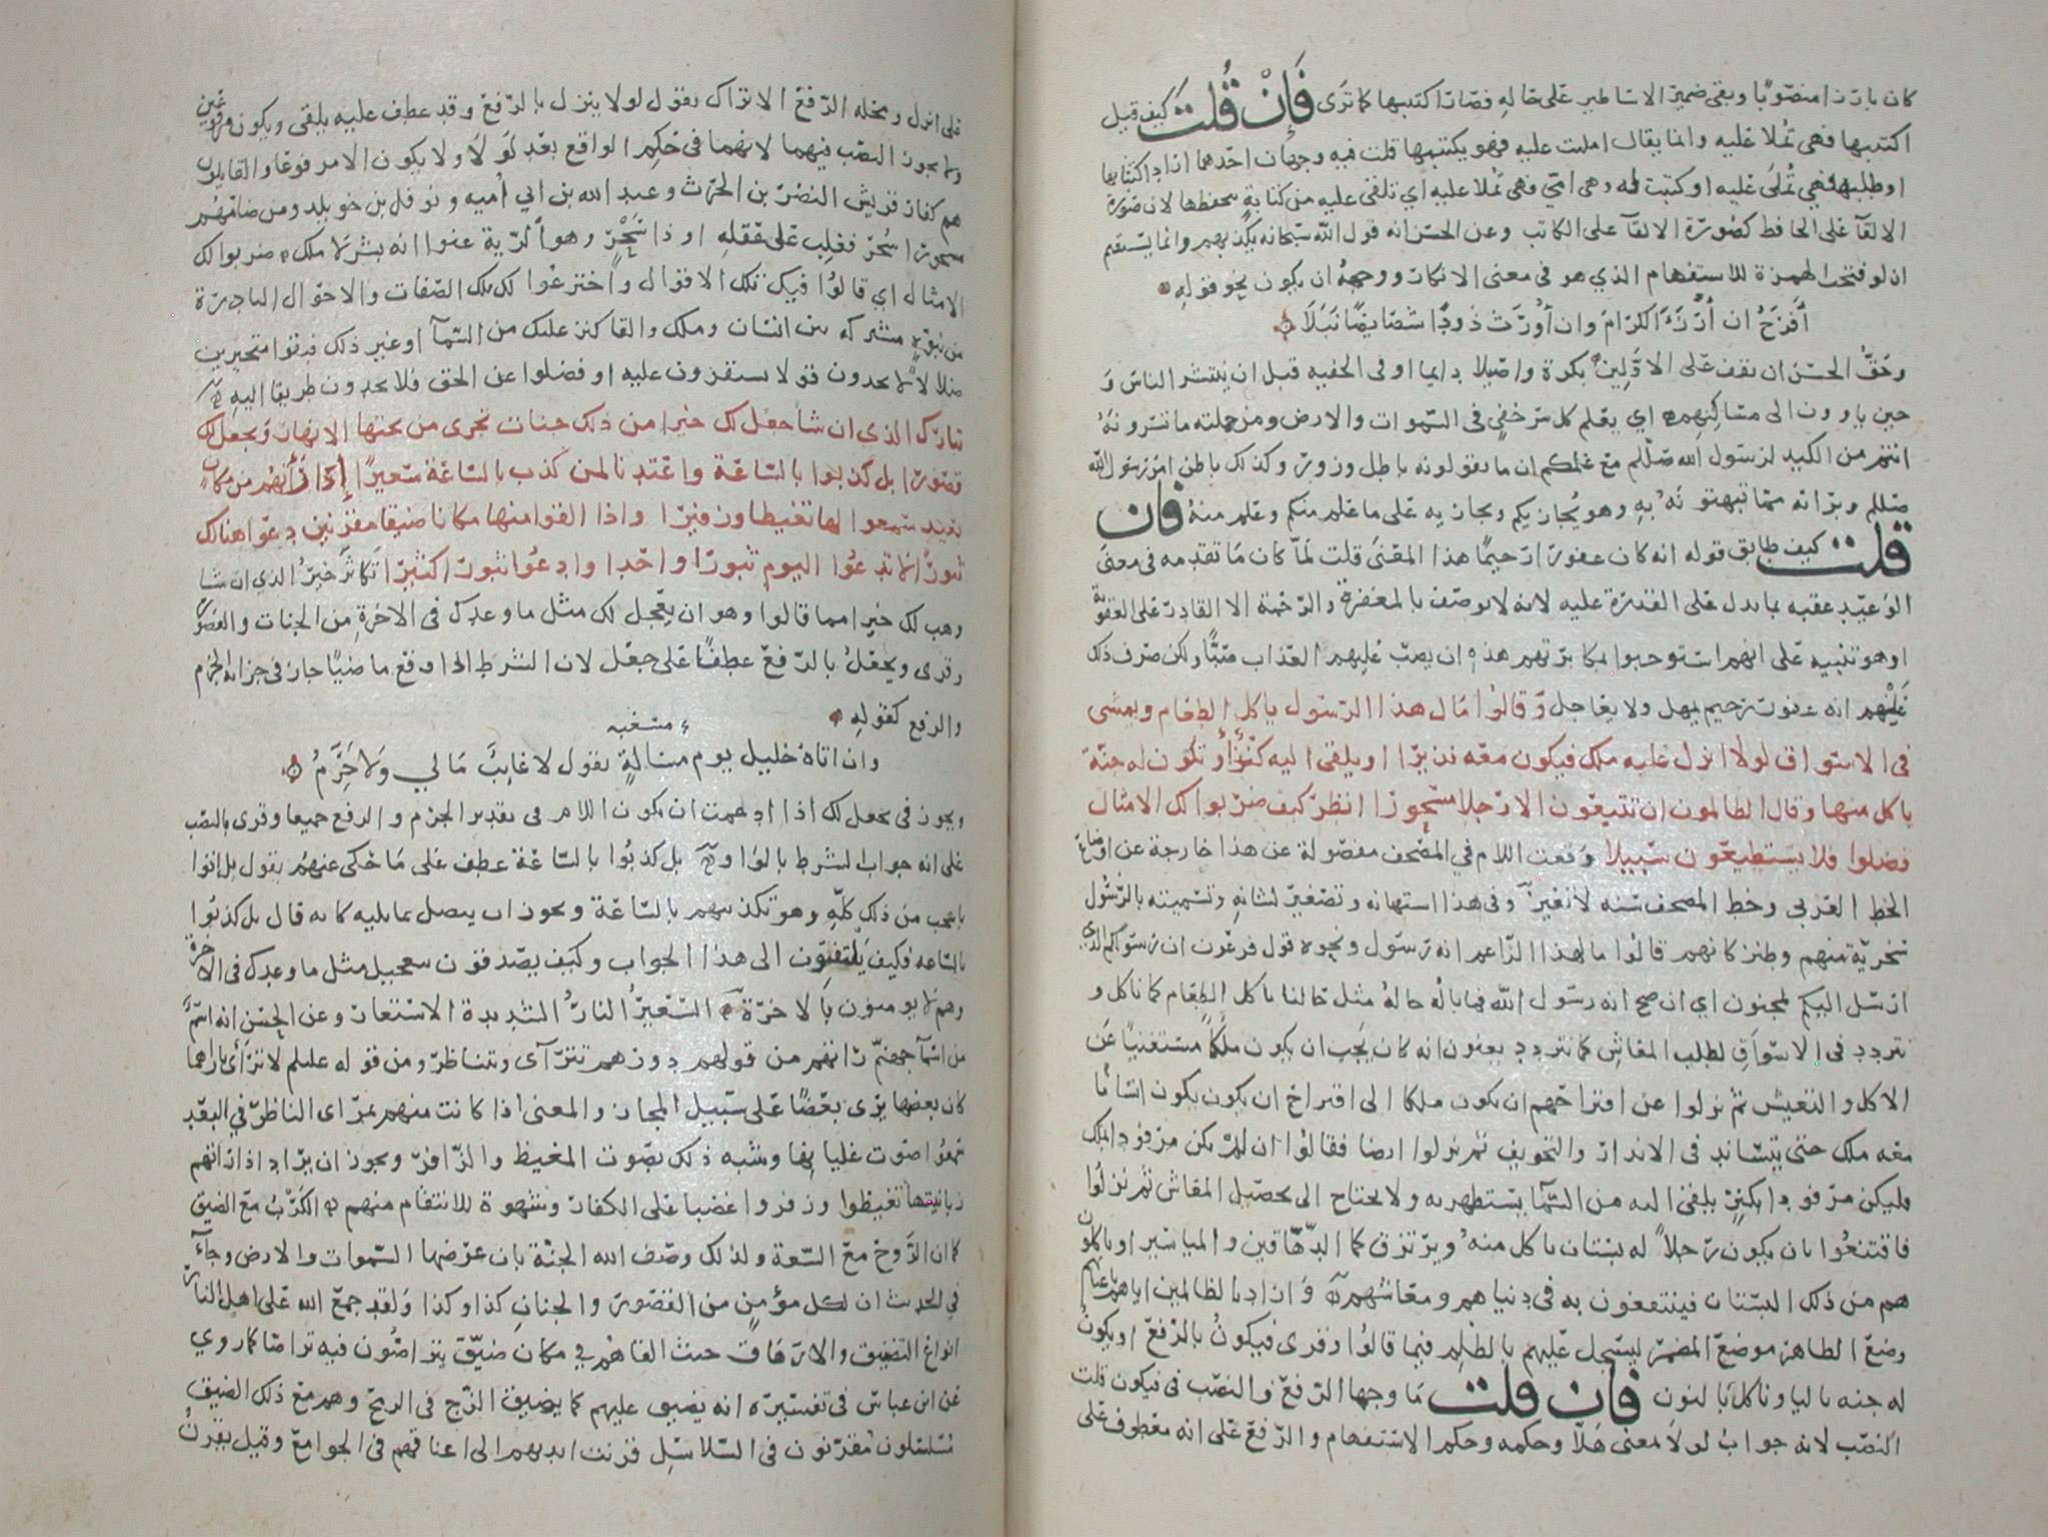 كان بارزا منصوبا وبقى ضمير الاساطير على حاله فصار اكتتبها كما ترى فَإِنْ قُلْتَ كيف قيل
اكتتبها فهي تملا عليه وانما يقال امليت عليه فهو يكتتبها قلت فيه وجهان احدهما اراد اكتتابها
او طلبها فهي تُملَى عليه او كتبت له وهى امي فهى تملا عليه اي تلقى عليه من كتابةٍ يحفظها لان صورة
الالقآ على الحافظ كصورة الالقآ على الكاتب وعن الحسن انه قول الله سبحانه يكذبهم وانما يستقيم
ان لو فتحت الهمزة للاستفهام الذي هو فى معنى الانكار ووجهه ان يكون نحو قوله
أَفرَحُ ان أُرْزَءَ الكرامَ وان أُورَثَ ذَودًا شصايصًا نَبَلَا
وحَقُّ الحسن ان يقف على الاوّلين بكرة واصيلا دايما او فى الخفيه قبل ان ينتشر الناس و
حين ياوون الى مساكنهم اي يعلم كل سر خفي فى السموات والارض ومن جملته ما تسرونهُ
انتم من الكيد لرسول الله صللم مع علمكم ان ما تقولونه باطل وزور وكذلك باطن امر رسول الله
صللم وبراته مما تبهتونَهُ بهِ وهو يُجازيكم ويجازيه على ما علم منكم وعلم منهُ فان
قلت كيف طابق قوله انه كان غفورا رحيمًا هذا المعنى قلت لمّا كان ما تقدمه فى معنى
الوعيد عقبه بما يدل على القدرة عليه لانه لا يوصف بالمغفرة والرحمة الا القادر على العقوبة
او هو تنبيه على انهم استوجبوا بمكابرتهم هذه ان يصب عليهم العذاب صبًّا ولكن صرف ذلك
عَنْهم انه غفور رحيم يمهل ولا يعاجل وَقالوا مَال هذا الرسول ياكل الطعام ويمشى
فى الاسواق لولا انزل عليه ملك فيكون معه نذيرًا او يلقى اليه كَنْزٌ أو تكون له جنّة
ياكل منها وقال الظالمون ان تتبعون الا رجلا مسحورا انظر كيف ضربوا لك الامثال
فضلوا فلا يستطيعون سبيلا وقعت اللام في المصحف مفصولة عن هذا خارجة عن اوضاع
الخط العربى وخط المصحف سنه لا تغير وفى هذا استهانه وتصغير لشانه وتسميته بالرسُول
سخرية منهم وطنز كانهم قالوا ما لهذا الزاعم انه رسول ونحوه قول فرعون ان رسولكم الذي
ارسل اليكم لمجنون اي ان صح انه رسول الله فما بالُه حالهُ مثل حالنا ياكل الطعام كما ناكل و
يتردد فى الاسواقِ لطلب المعاش كما نتردد يعنون انه كان يجب ان يكون ملكًا مستغنيًا عَن
الاكل والتعيش ثم نزلوا عن اقتراحهم ان يكون ملكا الى اقتراح ان يكون يكون انسانًا
معه ملك حتى يتساندا فى الانذار والتخويف ثم نزلوا ايضا فقالوا ان لمْ يكن مرفودا بملك
فليكن مرفودا بكنزٍ يلقى اليه من السّمآ يستظهر به ولا يحتاج الى تحصيل المعاش ثم نزلُوا
فاقتنعُوا بان يكون رجلاً له بستان ياكل منهُ ويرتزق كما الدّهّاقين والمياسير او ياكلون
هم من ذلك البستان فينتفعون به فى دنياهم ومعاشهم وَارادَ بالظالمين اياهم باعيانهم
وضعَ الظاهر موضع المضمر ليسجل عليهم بالظلمِ فيما قالوُا وقرى فيكونُ بالرفع او يكونُ
له جنه باليا وناكل بالنون فان قلت مَا وجها الرفع والنصب فى فيكون قلت
النصب لانه جوابُ لولا بمعنى هَلّا وحكمه وحكم الاستفهام والرفع على انه معطوف على
على انزل ومحله الرفع الا تراك تقول لولا ينزل بالرفع وقد عطف عليه يلقى ويكون مرفوعين
ولا يجوز النصب فيهما لانهما فى حكم الواقع بعد لَولَا ولا يكون الا مرفوعًا والقايلون
هم كفار قريش النضر بن الحرث وعبد الله بن ابي أُميه ونوفل بن خويلد ومن ضامّهم
مسحورا سُحر فغلب على عقله او ذا سَحْرٍ وهو الرّية عنوا انه بشر لا ملك ضربوا لك
الامثال اي قالوُا فيك تلك الاقوال واخترعوا لك تلك الصفات والاحوال النادرة
من نبوّه مشتركه بين انسان وملك والقا كنز عليك من السّمآ او غير ذلك فبقوا متحيرين
ضلالا لا يجدون قولا يستقرون عليه او فضلوا عن الحق فلا يجدون طريقا اليه
تبارك الذي ان شا جعل لك خيرا من ذلك جنات تجرى من تحتها الانهار وَيجعل لك
قصورا بل كذبوا بالساعة واعتدنا لمن كذب بالساعة سعيرًا إذا رأتهم من مكان
بعيد سمعوا لها تغيظا وزفيرًا واذا القوا منها مكانا ضيقا مقرنين دعوا هنالك
ثبورًا لا تدعوا اليوم ثبورًا واحدا وادعُوا ثبورًا كثيرًا تكاثر خيرُ الذي ان شا
وهب لك خيرا مما قالوا وهو ان يعجل لك مثل ما وعدك فى الاخرة من الجنات والقصور
وقرى ويجعلُ بالرفع عطفًا على جعل لان الشرط اذا وقع ماضيًا جاز فى جزائه الجزم
والرفع كقوله
مسغبه
وان اتاهُ خليل يوم مسالةٍ يقول لا غايبٌ مَالي ولا حَرِمُ
ويجوز فى يجعل لك اذا ادغمت ان يكون اللام فى تقدير الجزم والرفع جميعا وقرى بالنصب
على انه جواب الشرط بالواو بل كذبُوا بالسّاعَة عطف على مَا حكى عنهم يقول بل اتوا
باعجب من ذلك كلّهِ وهو تكذيبهم بالسّاعَة ويجوز ان يتصل بما يليه كانه قال بل كذبُوا
بالساعه فكيف يلتفتون الى هذا الجواب وكيف يصدقون بتعجيل مثل ما وعدك فى الاخرة
وهم لا يومنون بالاخرَة السَّعيرُ النارُ الشديدة الاستعار وعن الحسن انه اسمٌ
من اسمآ جهنّم رَاتهم من قولهم دورهم تترآى وتتناظر ومن قوله عليلم لا تترأى ناراهما
كان بعضها يرى بعضًا على سبيل المجاز والمعنى اذا كانت منهم بمرآى الناظر في البعد
سمعُوا صوت غليانها وشبه ذلك بصوت المغيظ والزافر ويجوز ان يراد اذا راتهم
زبانيتها تغيظوا وزفروا غضبا على الكفار وشهوة للانتقام منهم الكَرْبُ مع الضيق
كما ان الرَّوح معَ السّعة ولذلك وصف الله الجنّة بان عرضها السّموات والارض وجآءَ
في الحديث ان لكل مؤمنٍ من القصور والجنانِ كذا وكذا وَلقد جمعَ الله على اهل النار
انواع التضييق والارهاق حيث القاهم في مكان ضيّق يتراصُّون فيه تراصّا كما روي
عن ابن عباس فى تفسيره انه يضيق عليهم كما يضيق الزّج فى الرمح وهم مع ذلك الضيق
مُسلسلون مُقرّنون فى السّلاسِل قرنت ايديهم الى اعناقهم فى الجوامع وقيل يقرنُ